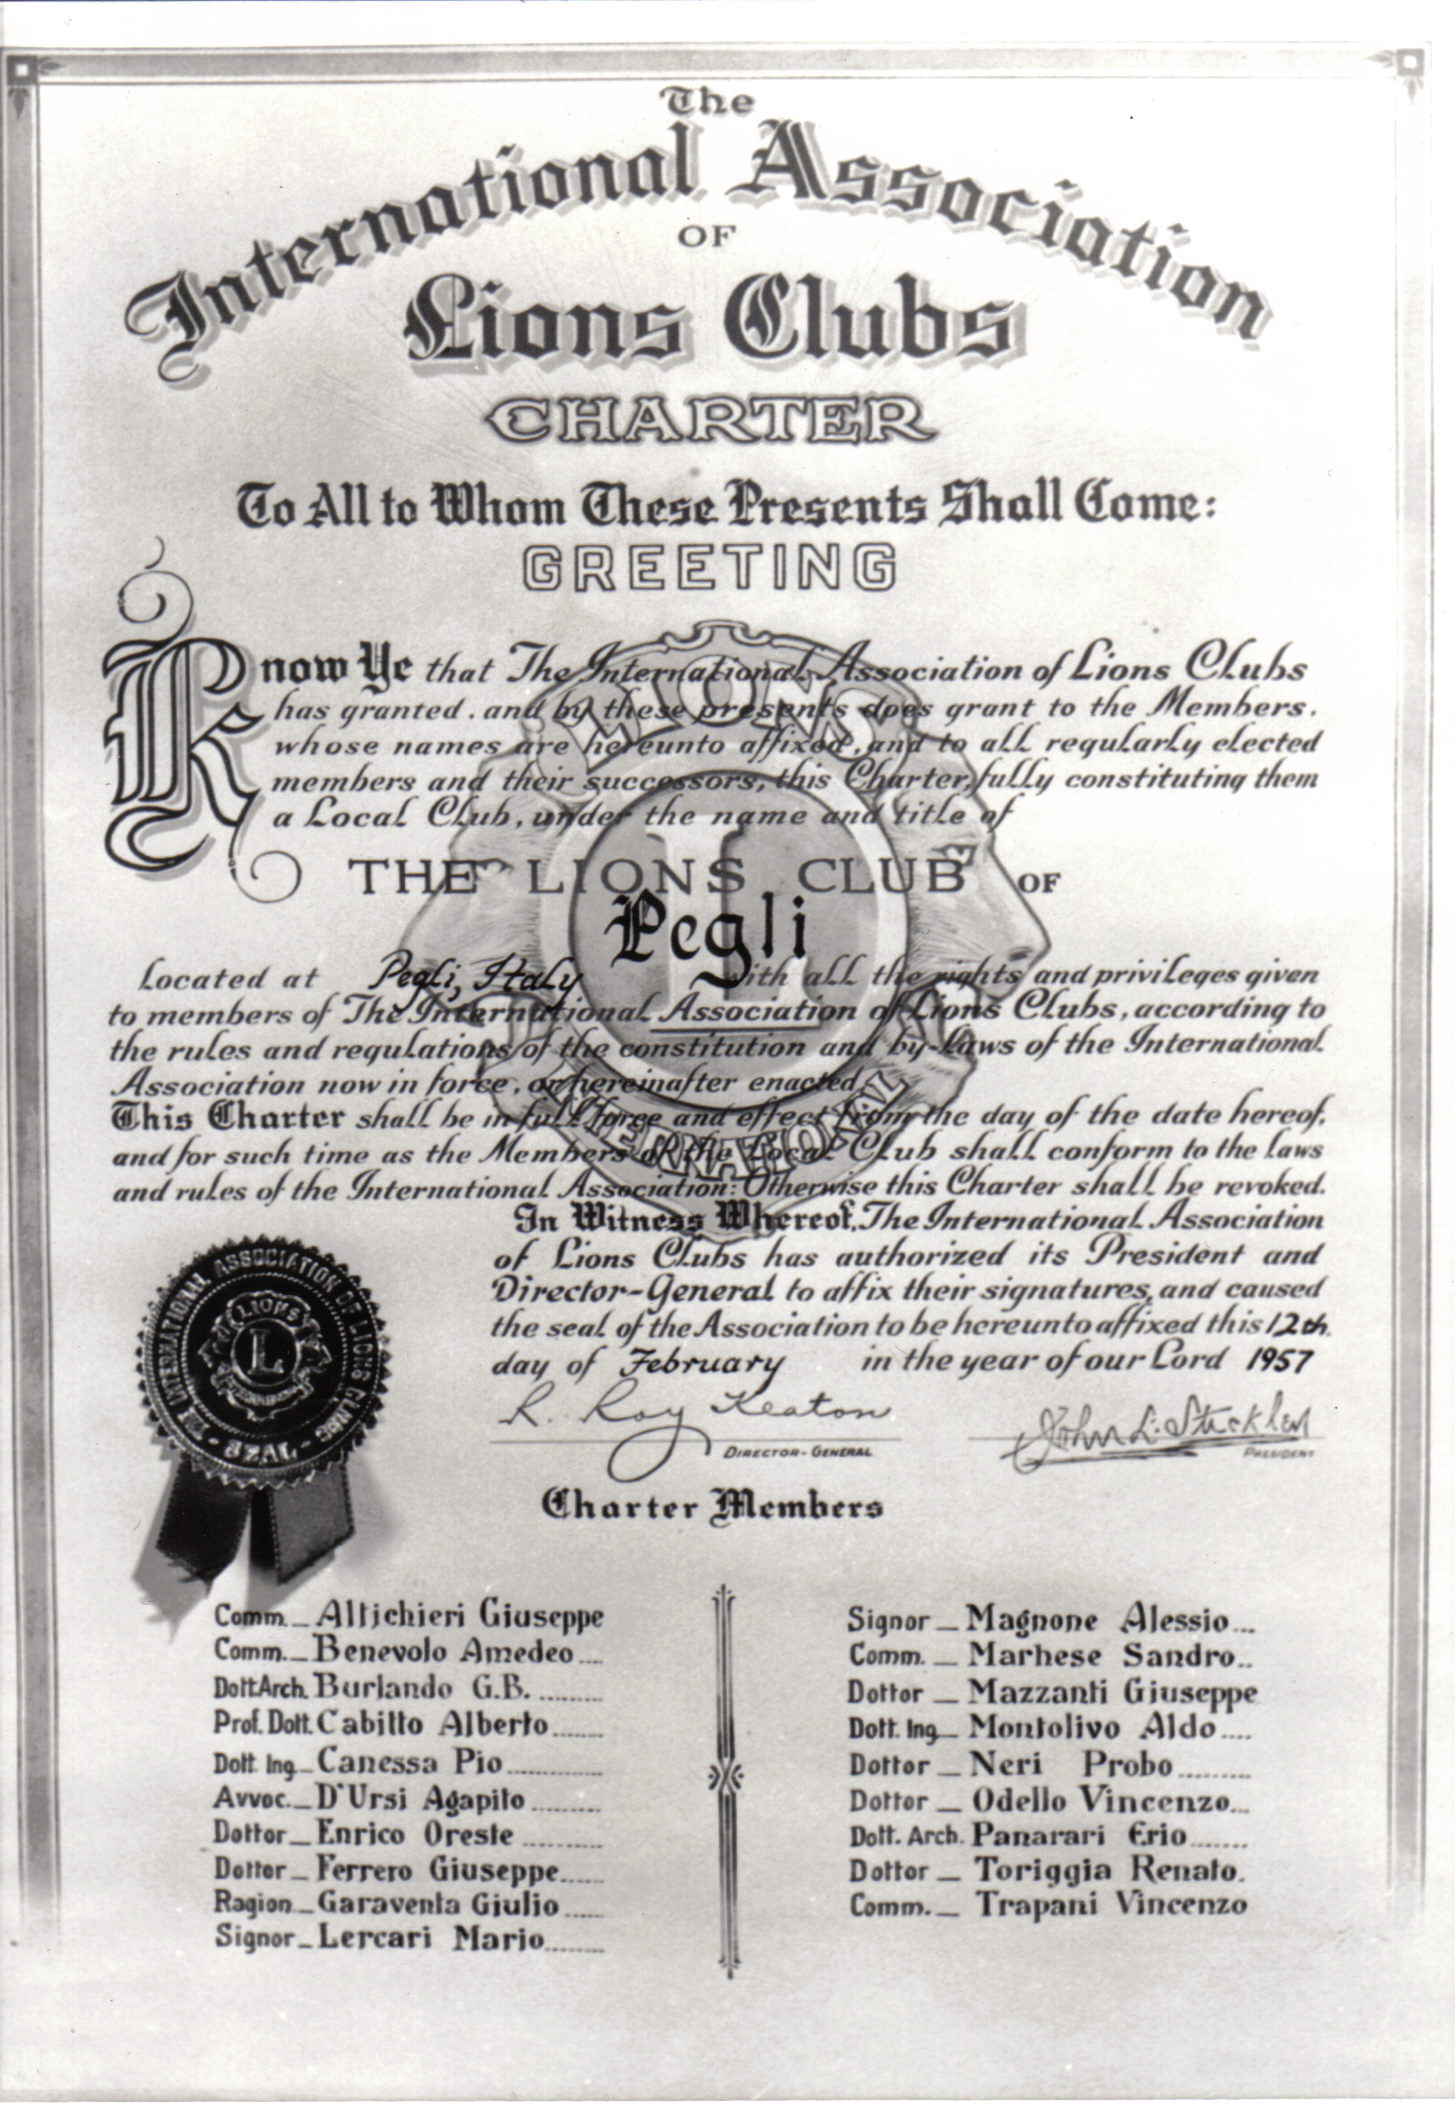 The
International Association
OF
Lions Clubs
CHARTER
To All to Whom These Presents Shall Come:
GREETING
Know Ye that The International Association of Lions Clubs
has granted, and by these presents does grant to the Members,
whose names are hereunto affixed, and to all regularly elected
members and their successors, this Charter, fully constituting them
a Local Club, under the name and title of
THE LIONS CLUB OF
Pegli
Located at Pegli, Italy with all the rights and privileges given
to members of The International Association of Lions Clubs, according to
the rules and regulations of the constitution and by-laws of the International
Association now in force, or hereinafter enacted.
This Charter shall be in full force and effect from the day of the date hereof,
and for such time as the Members of the Local Club shall conform to the laws
and rules of the International Association: Otherwise this Charter shall be revoked.
In Witness Whereof, The International Association
of Lions Clubs has authorized its President and
Director-General to affix their signatures, and caused
the seal of the Association to be hereunto affixed this 12th
day of February in the year of our Lord 1957
R. Roy Keaton
DIRECTOR-GENERAL
John L. Stickley
PRESIDENT
LIONS
L
INTERNATIONAL
THE INTERNATIONAL ASSOCIATION OF LIONS CLUBS
SEAL
LIONS
L
Charter Members
Comm. Altichieri Giuseppe
Comm. Benevolo Amedeo
Dott.Arch. Burlando G.B.
Prof. Dott. Cabitto Alberto
Dott. Ing. Canessa Pio
Avvoc. D'Ursi Agapito
Dottor Enrico Oreste
Dottor Ferrero Giuseppe
Ragion Garaventa Giulio
Signor Lercari Mario
Signor Magnone Alessio
Comm. Marhese Sandro
Dottor Mazzanti Giuseppe
Dott. Ing Montolivo Aldo
Dottor Neri Probo
Dottor Odello Vincenzo
Dott. Arch. Panarari Erio
Dottor Toriggia Renato.
Comm. Trapani Vincenzo